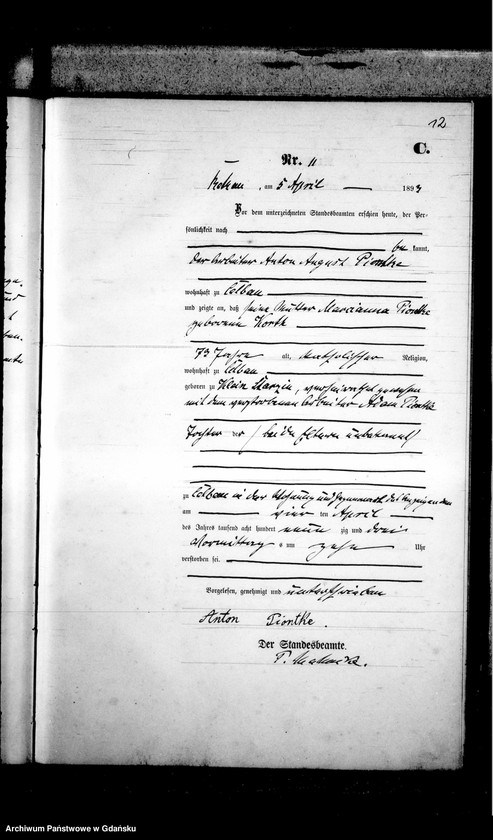 12
C.
Nr. 11
am 5 April 1893
Vor dem unterzeichneten Standesbeamten erschien heute, der Per-
sönlichkeit nach
be kannt,
der Arbeiter Anton August Piontke
wohnhaft zu Ceßlau
und zeigte an, daß seine Mutter Marcianna Piontke
geborene Korth
73 Jahre alt, katholischer Religion,
wohnhaft zu
geboren zu Klein verheirathet gewesen
mit dem verstorbenen Arbeiter Adam Piontke
Tochter der (beide Eltern unbekannt)
zu in der Wohnung und Gegenwart des Anzeigenden
am vier ten April
des Jahres tausend acht hundert neun zig und drei
Vormittag s um zehn Uhr
verstorben sei.
Vorgelesen, genehmigt und unterschrieben
Anton Piontke.
Der Standesbeamte.
Archiwum Państwowe w Gdańsku